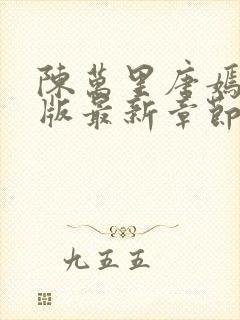 陳萬里唐嫣
版最新章節
九五五